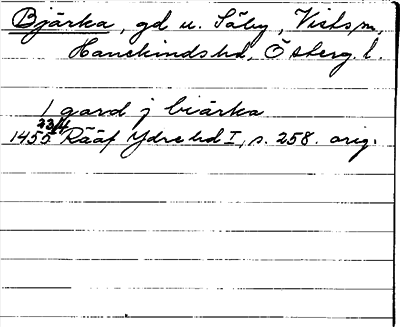 Bjärka, gd u. Säby, Vists sn,
Hanekinds hd, Österg. l.
1 gard j biärka
1455 23/4 Rääf Ydre hd I, s. 258. orig.